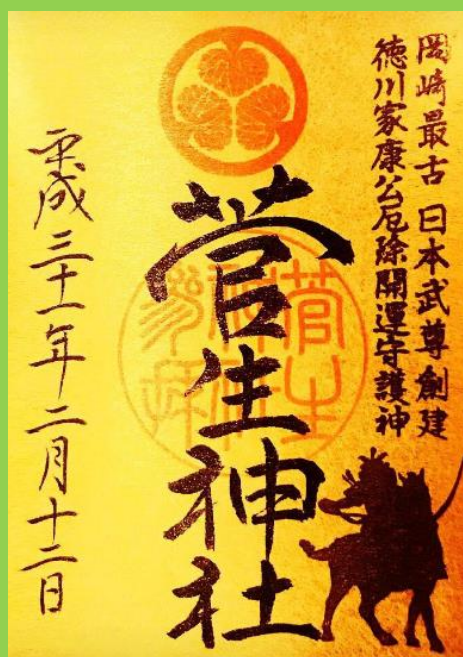 岡崎最古 日本武尊創建
徳川家康公厄除開運守護神
菅生神社
平成三十一年二月十二日